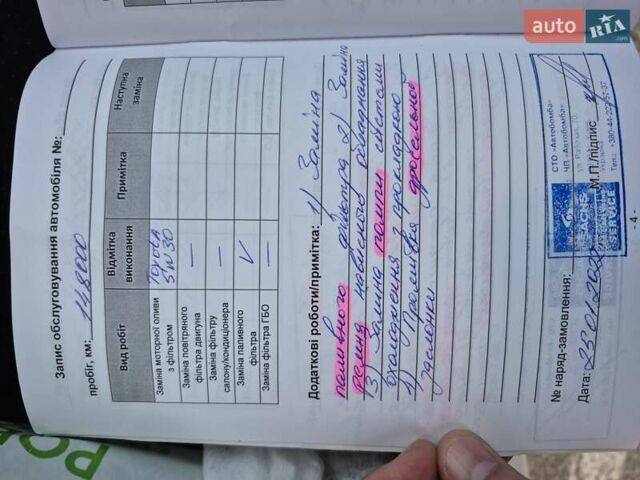 Запис обслуговування автомобіля №:
пробіг, км: 148000
Вид робіт
Відмітка виконання
Примітка
Наступна заміна
Заміна моторної оливи з фільтром
Toyota 5W30
Заміна повітряного фільтра двигуна
—
Заміна фільтру салону/кондиціонера
—
Заміна паливного фільтра
V
Заміна фільтра ГБО
—
Додаткові роботи/примітка: 1) Заміна
паливного фильтра 2) Заміна
ремня навісного обладнання
3) Заміна помпи системи
охлаждения з прокладкою
4) Промивка дросельной
заслонки
№ наряд-замовлення:
Дата: 23.01.202
М.П./підпис
SACHS
SERVICE
СТО «Автобомба»
ЧП «Автобомба»
- 4 -
auto RIA
.com